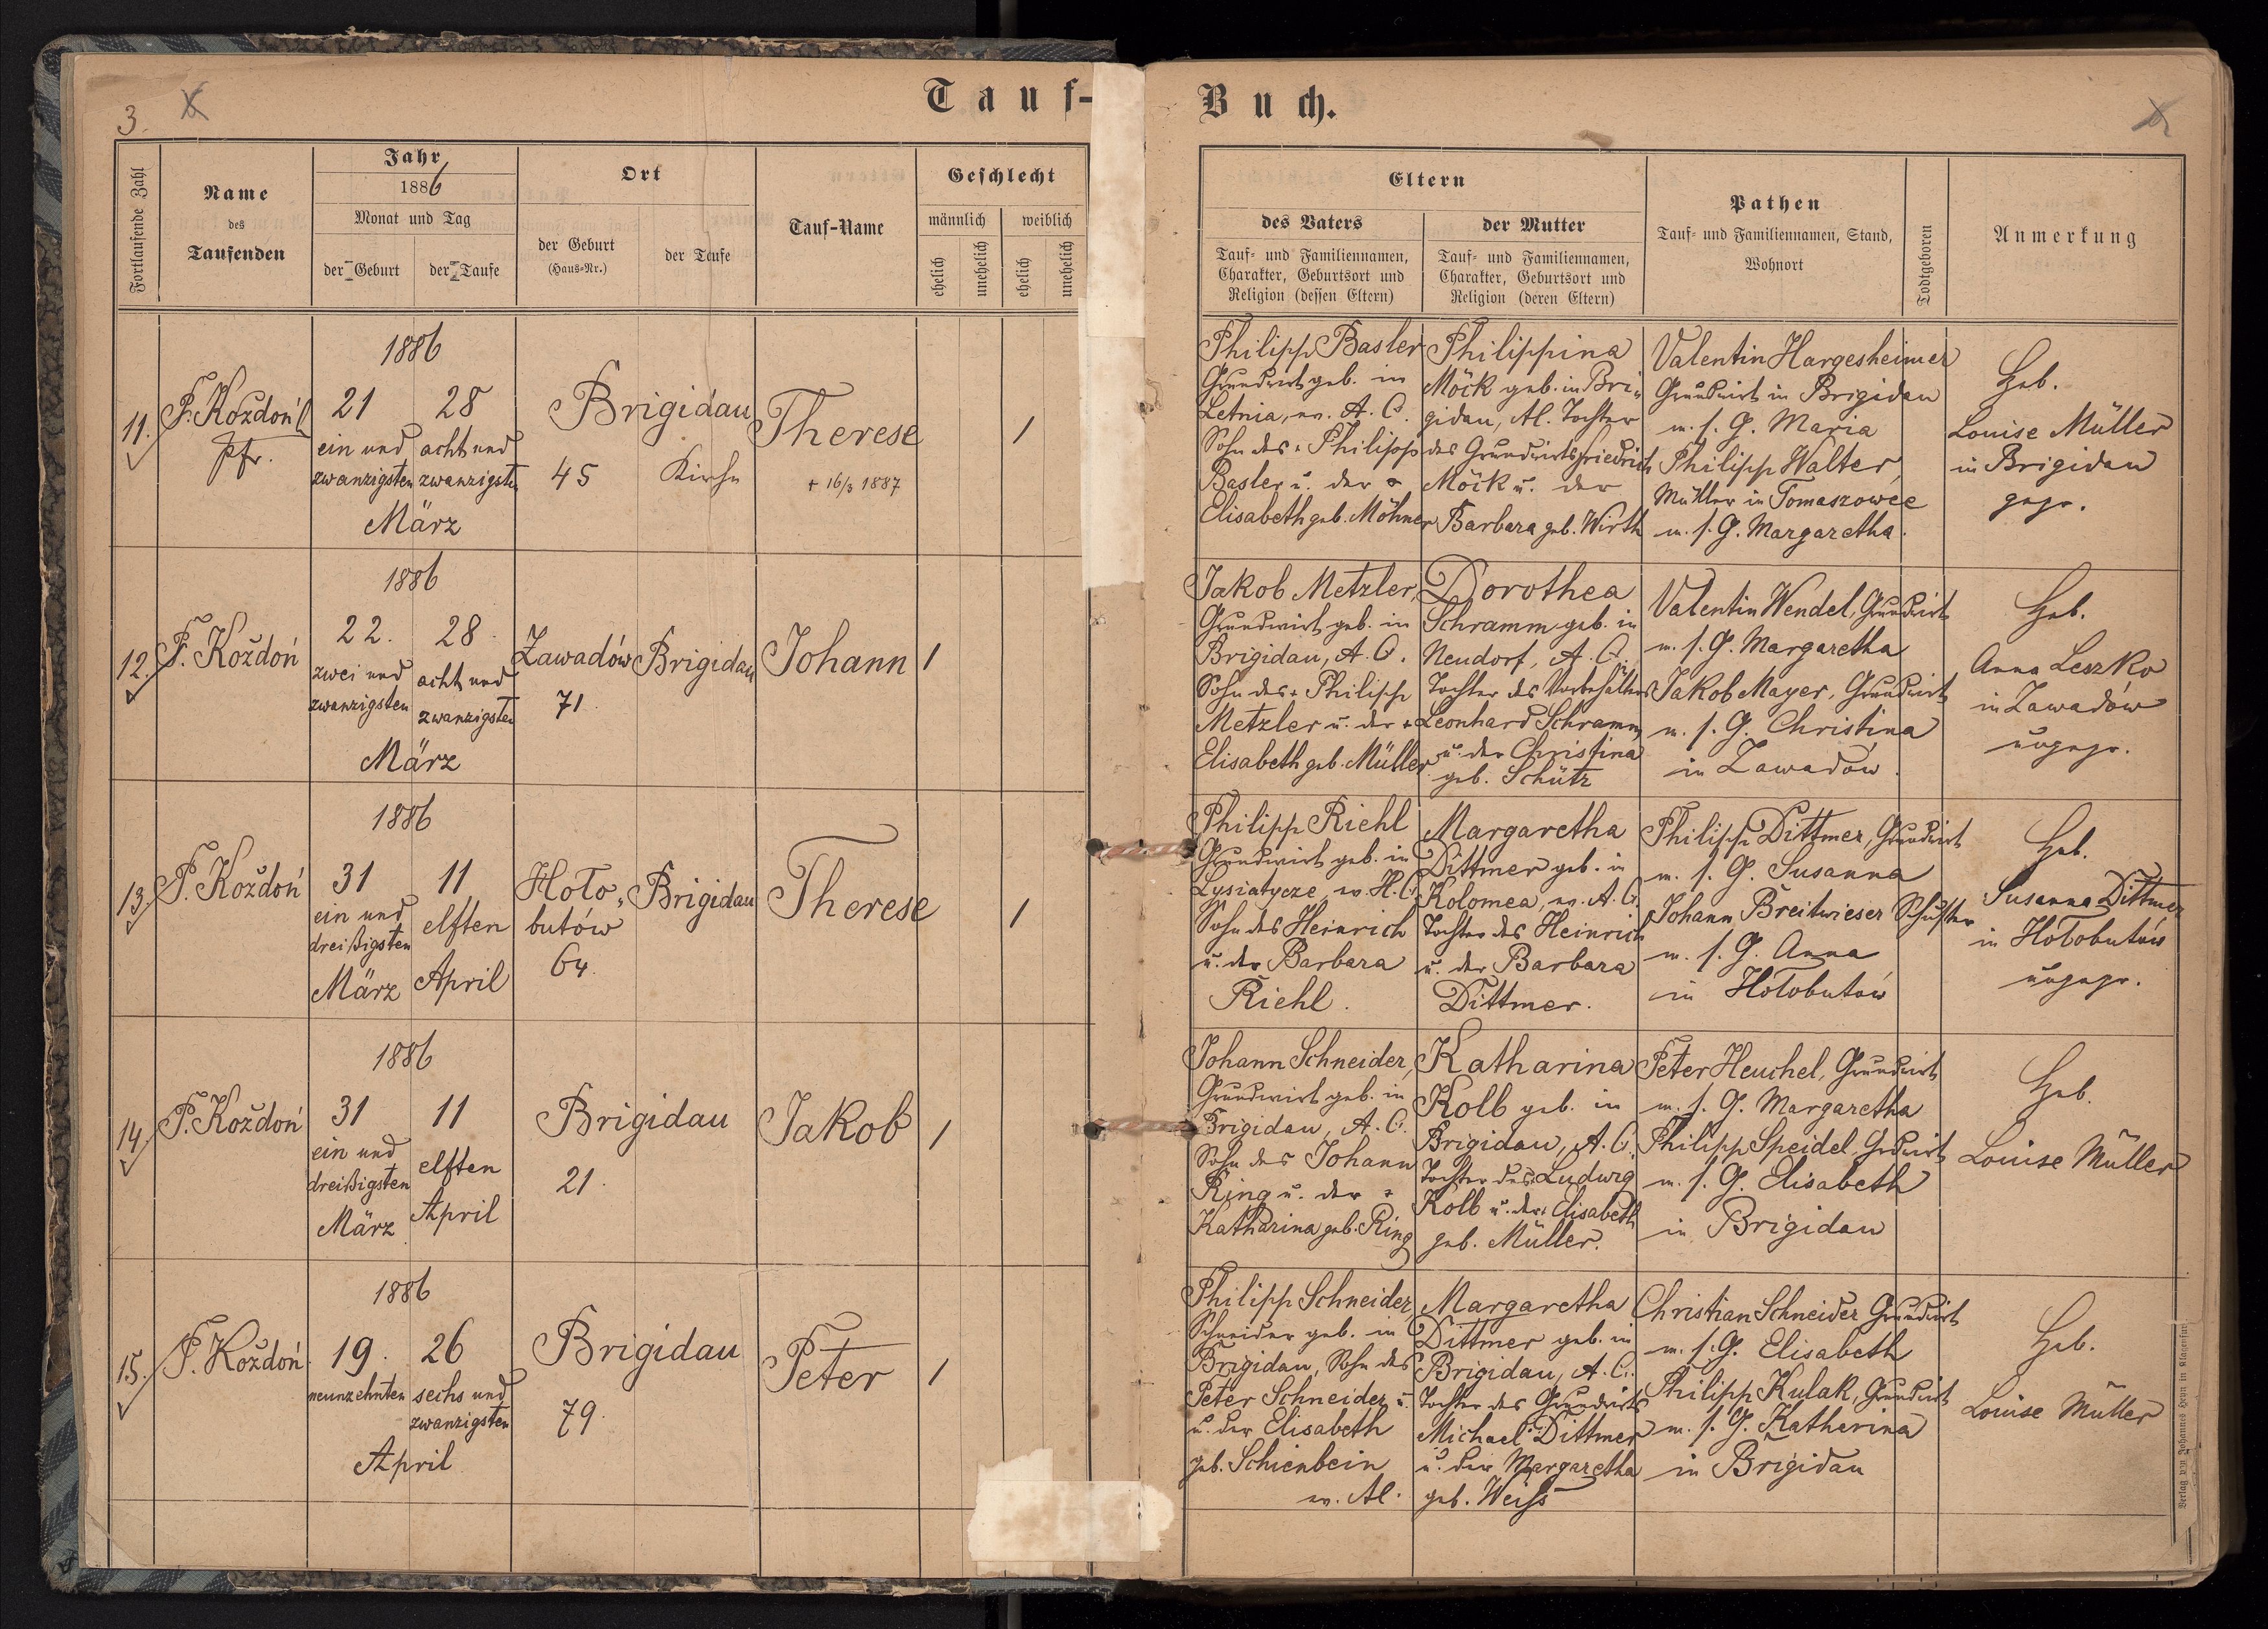 3.
Tauf-
Buch.
Fortlaufende Zahl
Name
des
Taufenden
Jahr
1886
Monat und Tag
der Geburt
der Taufe
Ort
der Geburt
(Haus-Nr.)
der Taufe
Tauf-Name
Geschlecht
männlich
weiblich
ehelich
unehelich
ehelich
unehelich
Eltern
des Vaters
Tauf- und Familiennamen,
Charakter, Geburtsort und
Religion (dessen Eltern)
der Mutter
Tauf- und Familiennamen,
Charakter, Geburtsort und
Religion (deren Eltern)
Pathen
Tauf- und Familiennamen, Stand,
Wohnort
Todtgeboren
Anmerkung
11.
F. Kozdoń
Pfr.
1886
21
ein und
zwanzigsten
28
acht und
zwanzigsten
März
Brigidau
45
Kirche
Therese
+ 16/3 1887
1
Philipp Basler
Grundwirt geb. in
Letnia, ev. A. C.
Sohn des + Philipp
Basler u. der +
Elisabeth geb. Möhner
Philippina
Möck geb. in Bri-
gidau, AC. Tochter
des Grundwirts Friedrich
Möck u. der
Barbara geb. Wirth
Valentin Hargesheimer
Grundwirt in Brigidau
m. s. G. Maria
Philipp Walter
Müller in Tomaszowce
m. s. G. Margaretha.
Heb.
Louise Müller
in Brigidau
gepr.
12.
F. Koždoń
1886
22.
zwei und
zwanzigsten
28
acht und
zwanzigsten
März
Zawadów
71
Brigidau
Johann
1
Jakob Metzler,
Grundwirt geb. in
Brigidau, A. C.
Sohn des + Philipp
Metzler u. der +
Elisabeth geb. Müller
Dorothea
Schramm geb. in
Neudorf, A. C.
Tochter des Vorbehälters
Leonhard Schramm
u. der Christina
geb. Schütz
Valentin Wendel, Grundwirt
m. s. G. Margaretha
Jakob Mayer, Grundwirt
m. s. G. Christina
in Zawadów.
Heb.
Anna Leszko
in Zawadów
ungepr.
13.
F. Koždoń
1886
31
ein und
dreißigsten
März
11
elften
April
Hoło-
butów
64.
Brigidau
Therese
1
Philipp Riehl
Grundwirt geb. in
Lysiatycze, ev. H. C.
Sohn des Heinrich
u. der Barbara
Riehl.
Margaretha
Dittmer geb. in
Kolomea, ev. A. C.
Tochter des Heinrich
u. der Barbara
Dittmer.
Philipp Dittmer, Grundwirt
m. s. G. Susanna
Johann Breitwieser Schuster
m. s. G. Anna
in Hołobutów
Heb.
Susanna Dittmer
in Hołobutów
ungepr.
14.
F. Koždoń
1886
31
ein und
dreißigsten
März
11
elften
April
Brigidau
21.
Jakob
1
Johann Schneider,
Grundwirt geb. in
Brigidau, A. C.
Sohn des Johann
Ring u. der +
Katharina geb. Ring
Katharina
Kolb geb. in
Brigidau, A. C.
Tochter des Ludwig
Kolb u. der + Elisabeth
geb. Müller.
Peter Heuchel, Grundwirt
m. s. G. Margaretha
Philipp Speidel, Grdwirt
m. s. G. Elisabeth
in Brigidau
Heb.
Louise Müller
15.
F. Koždoń
1886
19.
neunzehnten
26
sechs und
zwanzigsten
April
Brigidau
79.
Peter
1
Philipp Schneider,
Schneider geb. in
Brigidau, Sohn des
Peter Schneider u.
u. der Elisabeth
geb. Schienbein
ev. AC.
Margaretha
Dittmer geb. in
Brigidau, A. C.
Tochter des Grundwirts
Michael Dittmer
u. der Margaretha
geb. Weiß
Christian Schneider Grundwirt
m. s. G. Elisabeth
Philipp Kulak, Grundwirt
m. s. G. Katharina
in Brigidau
Heb.
Louise Müller
Verlag von Johannes Heyn in Klagenfurt.